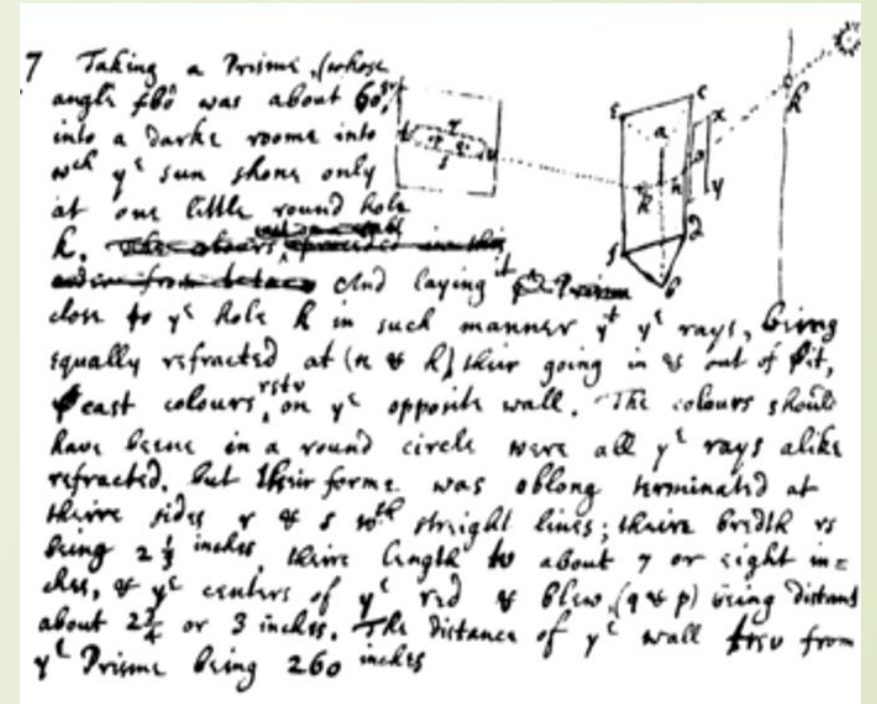 7 Taking a Prisme, (whose
angle fbd was about 60gr)
into a darke roome into
wch ye sun shone only
at one little round hole
k. The colours proceeded in this
order from And laying it Prism
close to ye hole k in such manner yt ye rays, being
equally refracted at (n & h) their going in & out of it,
cast colours rstv on ye opposite wall. The colours should
have beene in a round circle were all ye rays alike
refracted, but their forme was oblong terminated at
theire sides r & s wth streight lines; theire bredth rs
being 2 1/3 inches, theire length tv about 7 or eight in=
ches, & ye centers of ye red & blew, (q & p) being distant
about 2 3/4 or 3 inches. The distance of ye wall trsv from
ye Prisme being 260 inches
t
r
p
q
s
v
e
c
a
x
o
n
y
h
f
d
b
k